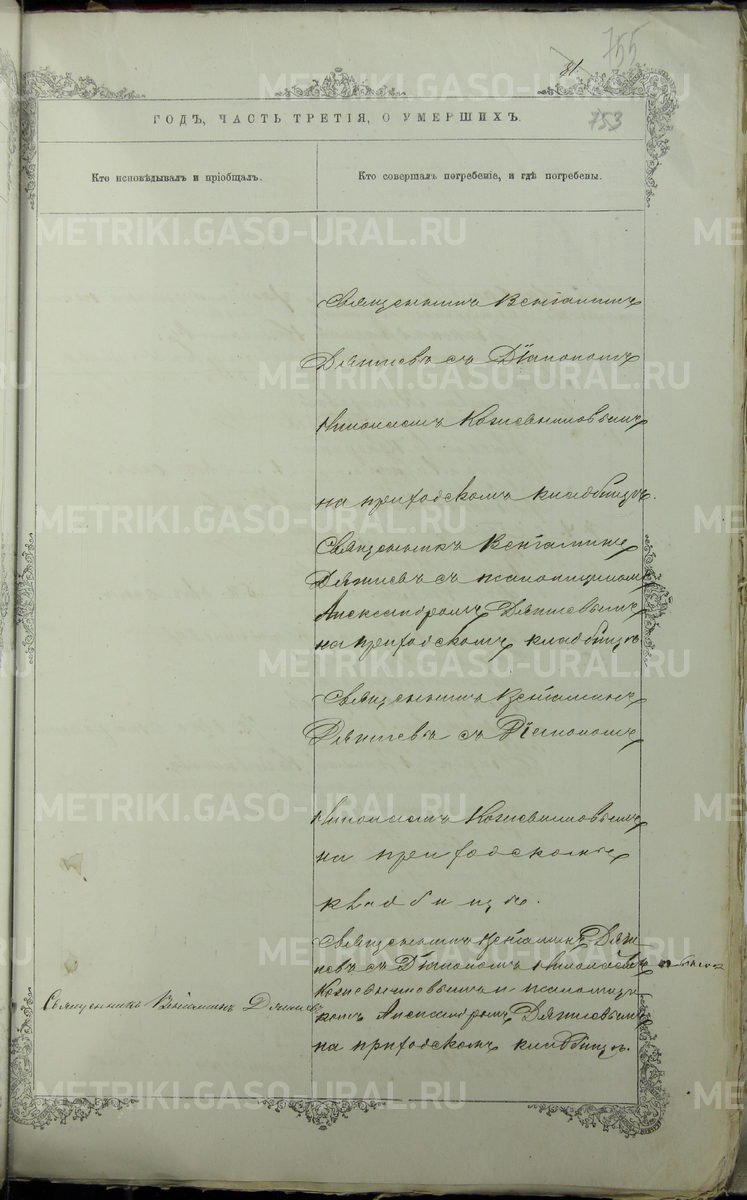 755
31
METRIKI.GASO-URAL.RU
ГОДЪ, ЧАСТЬ ТРЕТІЯ, О УМЕРШИХЪ.
753
Кто исповѣдывалъ и пріобщалъ.
Кто совершалъ погребеніе, и гдѣ погребены.
Священникъ Веніаминъ
съ Діакономъ
Николаемъ Кожевниковымъ
на приходскомъ кладбищѣ.
Священникъ Веніаминъ
съ псаломщикомъ
Александромъ
на приходскомъ кладбищѣ
Священникъ Веніаминъ
съ Діакономъ
Николаемъ Кожевниковымъ
на приходскомъ
кладбищѣ.
Священникъ Веніаминъ
съ Діакономъ Николаемъ
Кожевниковымъ и псаломщи
комъ Александромъ
на приходскомъ кладбищѣ.
Священникъ Веніаминъ